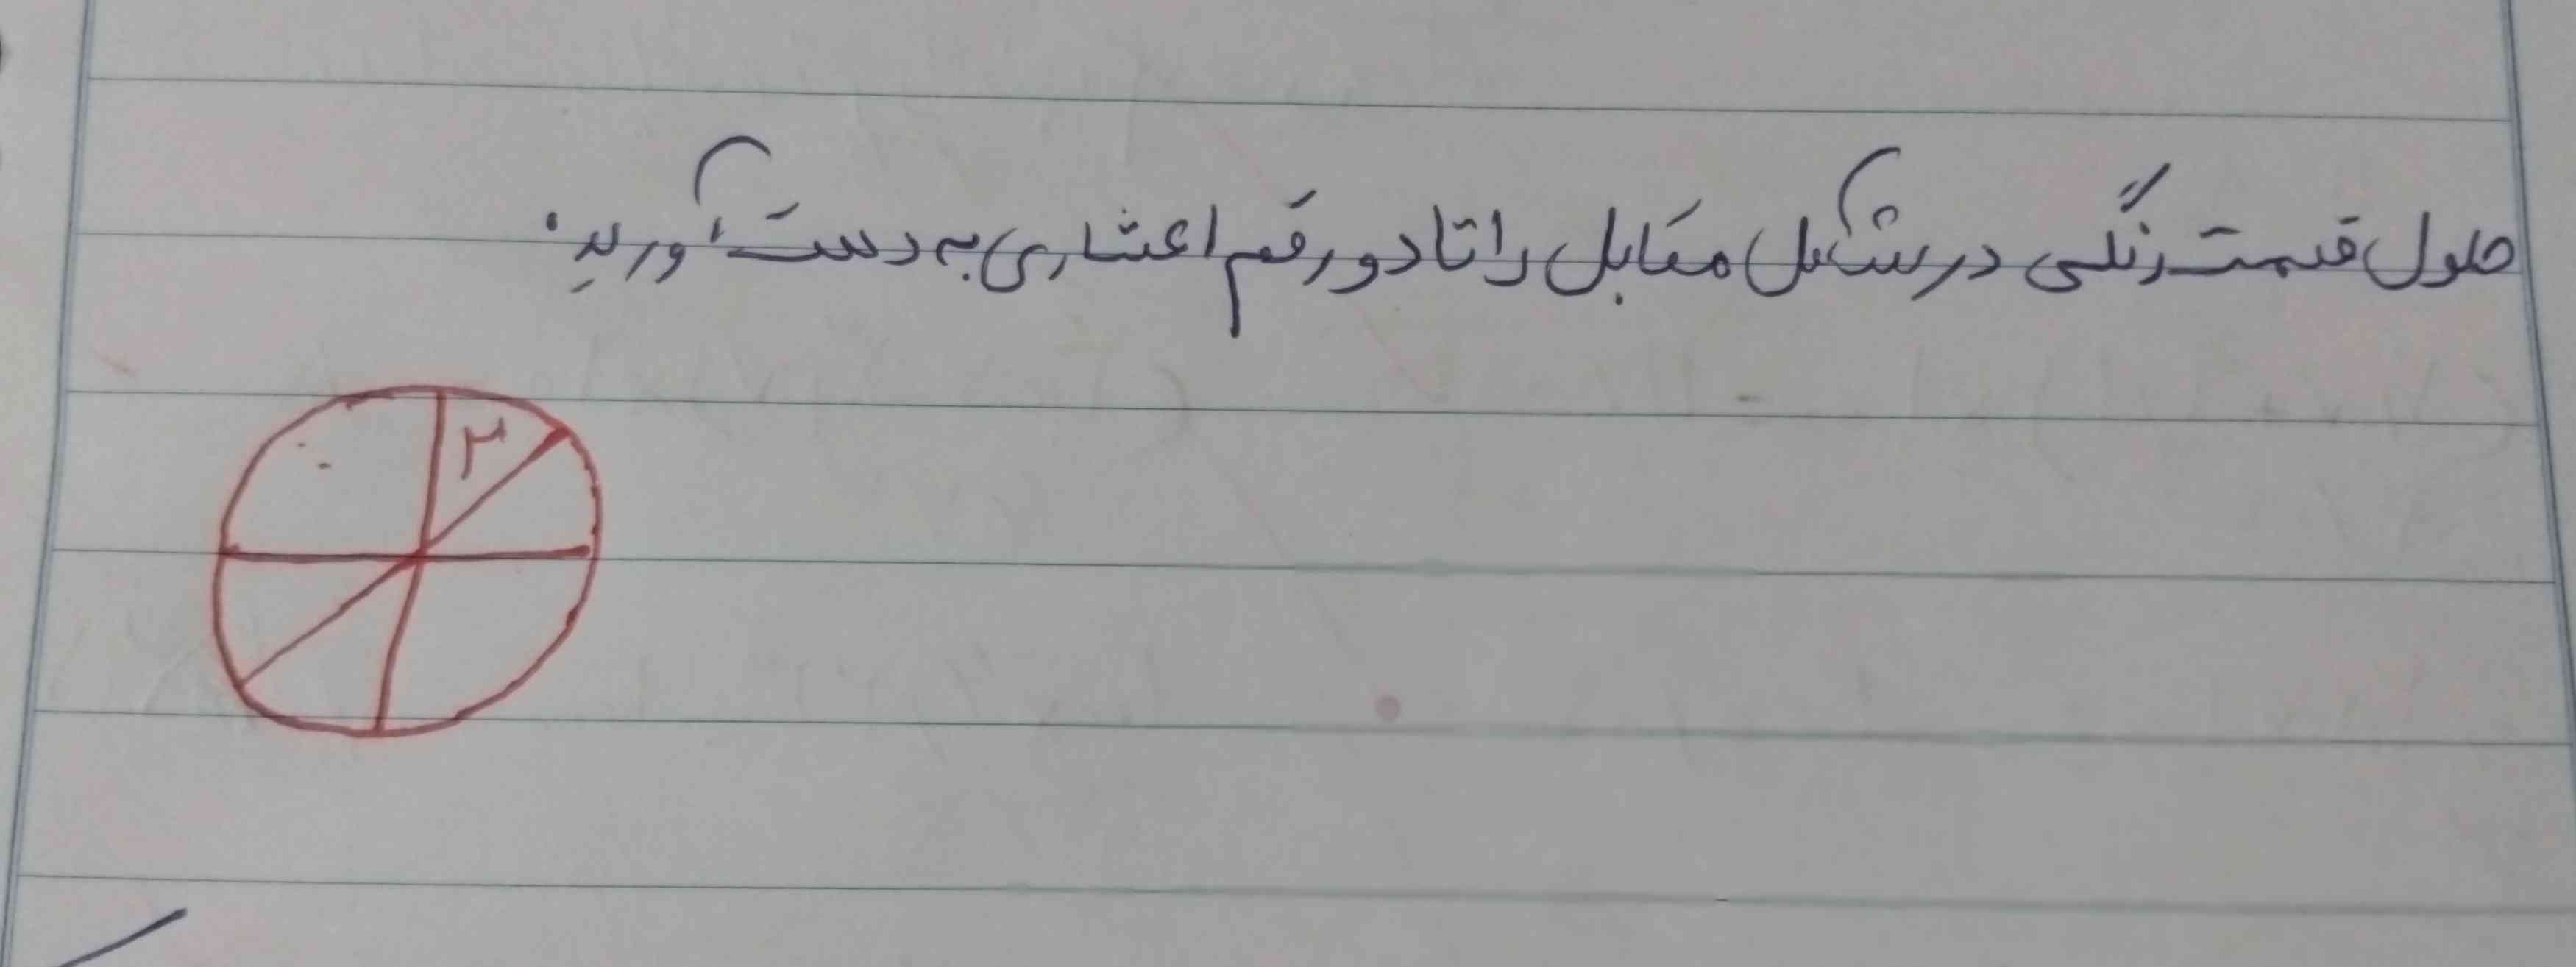 طول قسمت رنگی در شکل مقابل را تا دو رقم اعشاری به دست آورید.
۲